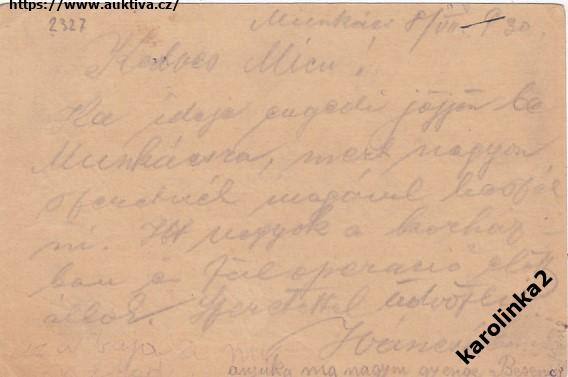 https://www.auktiva.cz/
2327
Munkács 8/VII. 930.
Kedves Micu!
Ha ideje engedi jöjjön be
Munkácsra, mert nagyon
szeretnék magával beszél
ni. Itt vagyok a korház-
ban a fül operació előtt
állok. Szeretettel üdvözli
karolinka2
anyuka ma nagyon gyenge